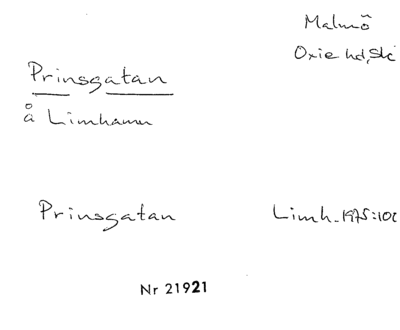 Malmö
Oxie hd, Sk
Prinsgatan
å Limhamn
Prinsgatan Limh. 1975:
Nr 21921